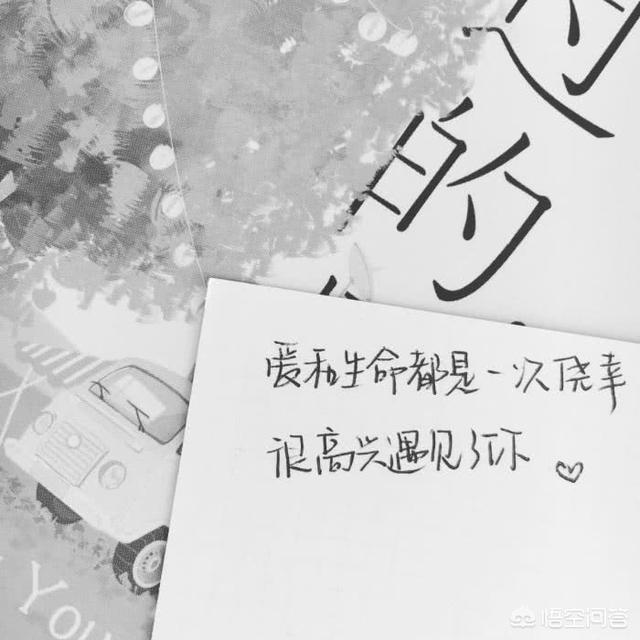 的
爱和生命都是一次侥幸
很高兴遇见了你 ♡
You
悟空问答